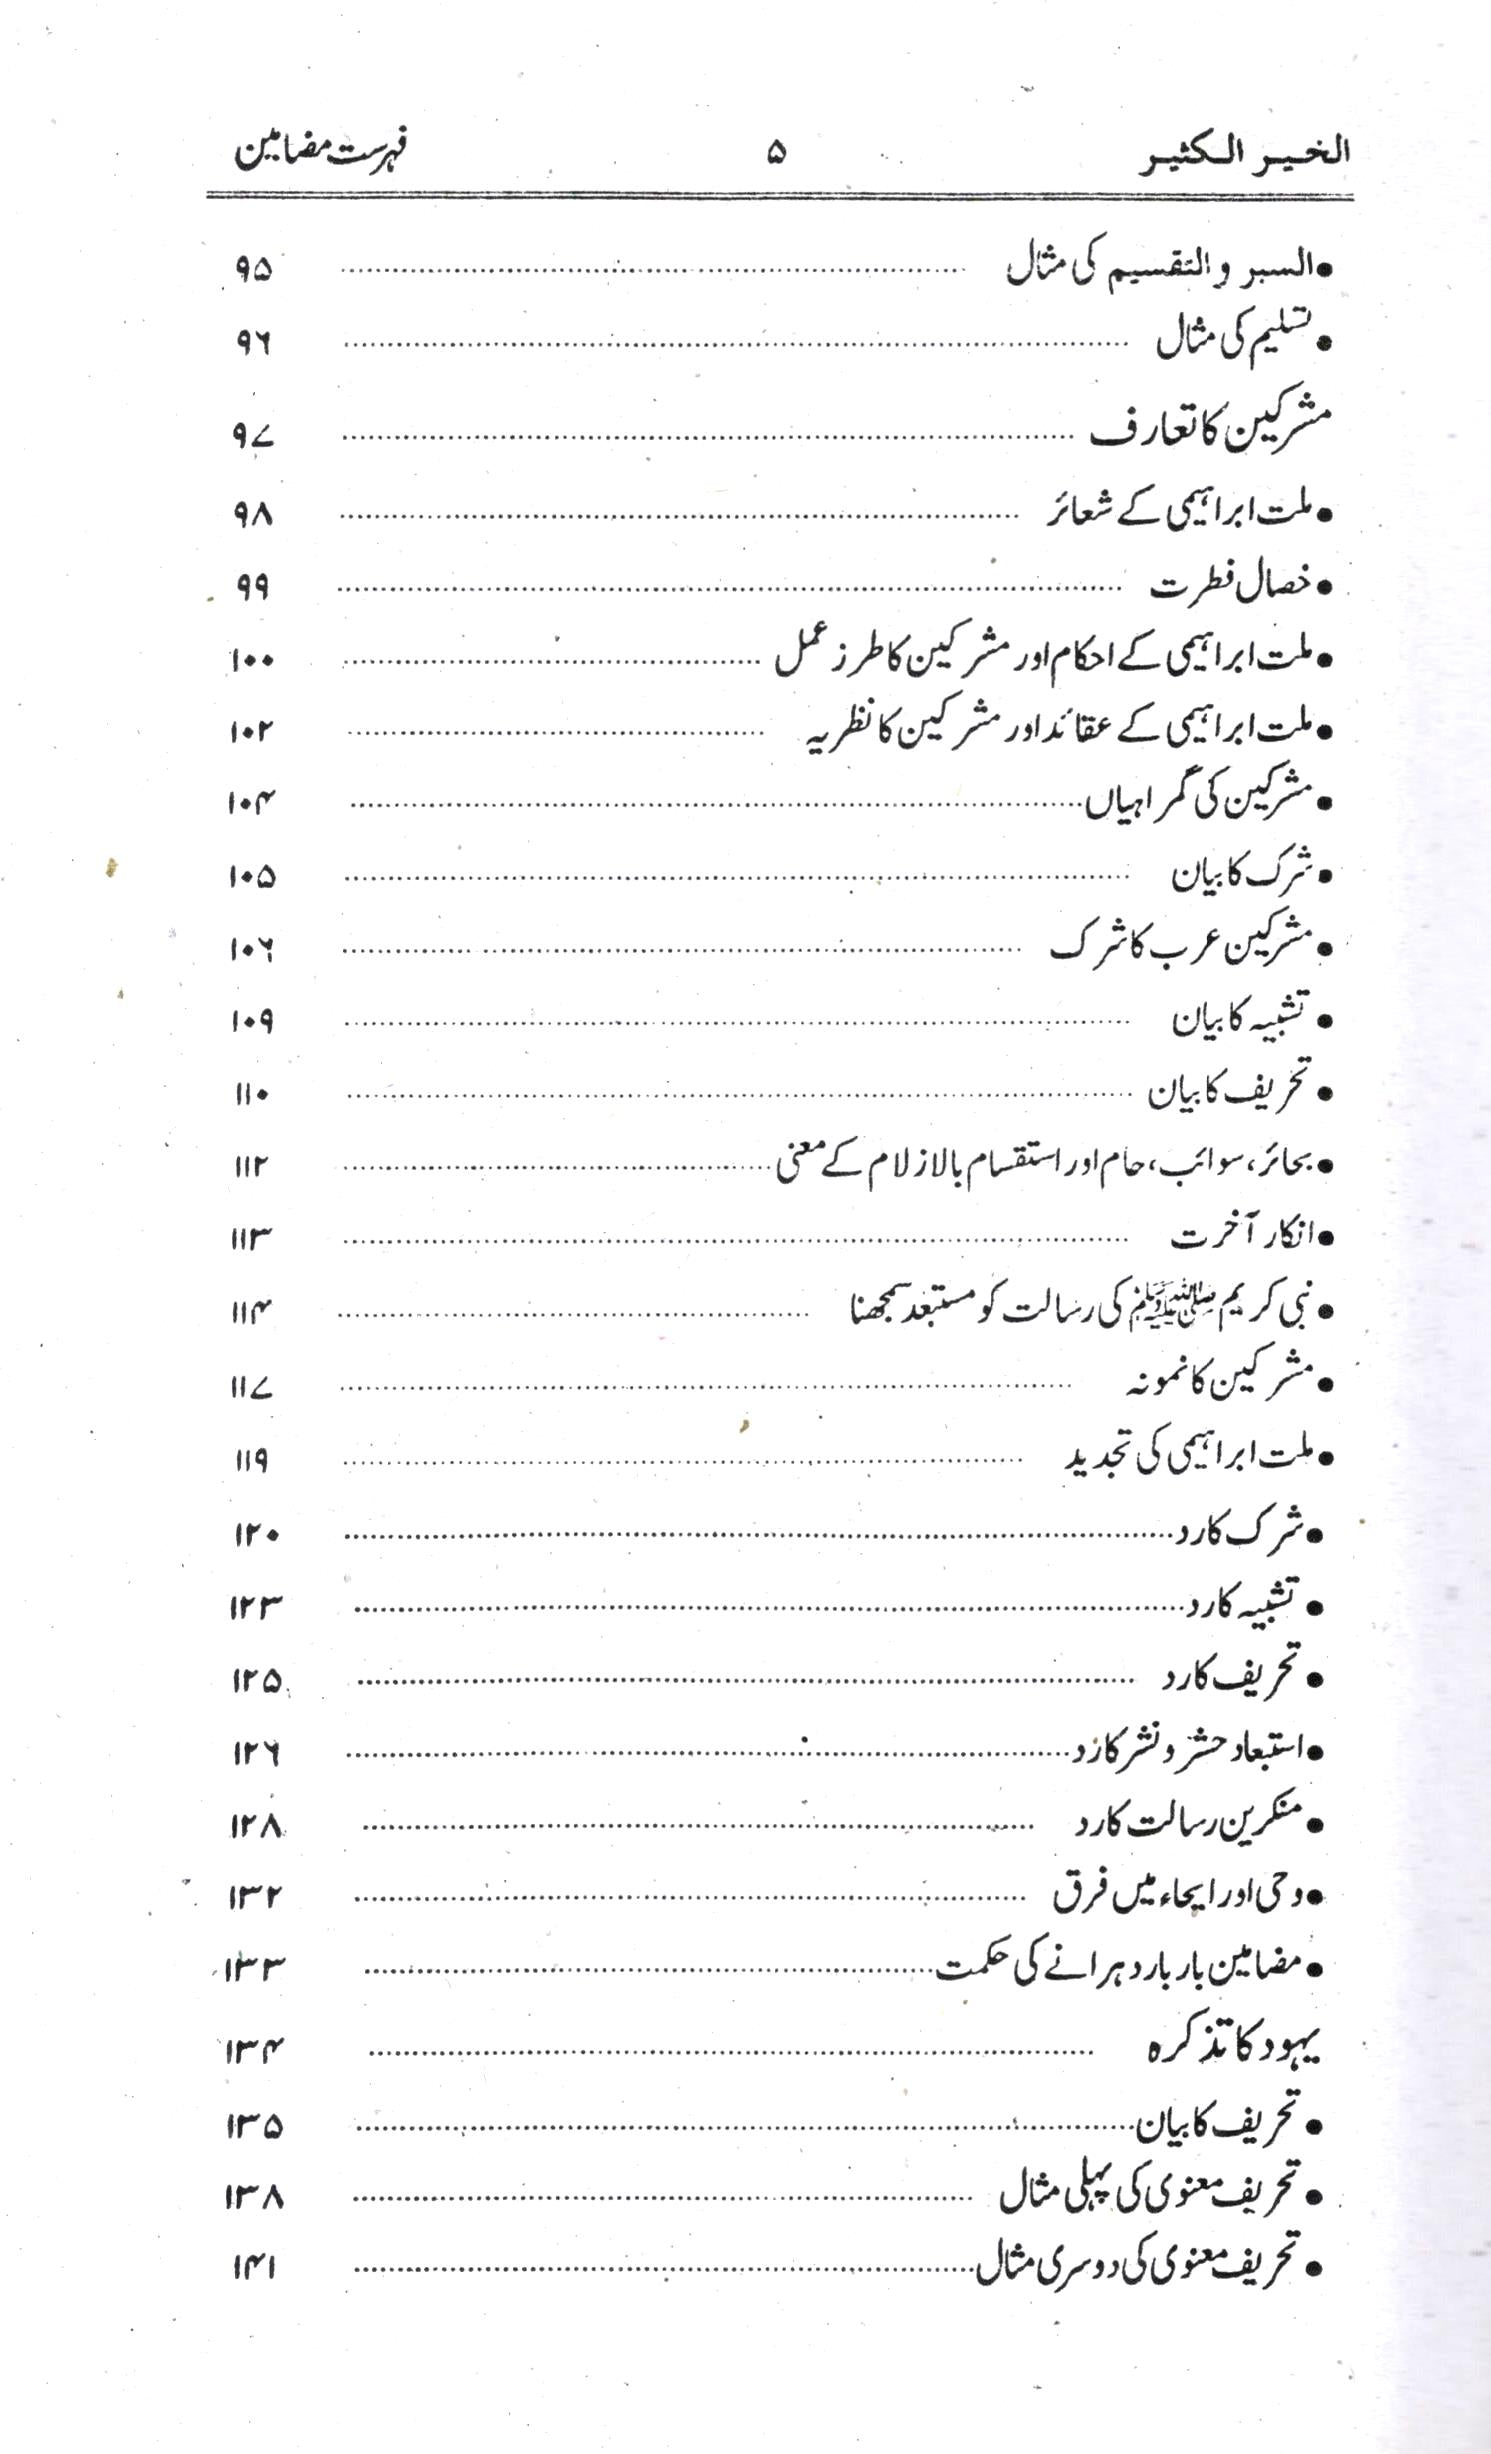 الخیر الکثیر ۵ فہرست مضامین
• السبر والتقسیم کی مثال ۹۵
• تسلیم کی مثال ۹۶
مشرکین کا تعارف ۹۷
• ملت ابراہیمی کے شعائر ۹۸
• خصال فطرت ۹۹
• ملت ابراہیمی کے احکام اور مشرکین کا طرز عمل ۱۰۰
• ملت ابراہیمی کے عقائد اور مشرکین کا نظریہ ۱۰۲
• مشرکین کی گمراہیاں ۱۰۴
• شرک کا بیان ۱۰۵
• مشرکین عرب کا شرک ۱۰۶
• تشبیہ کا بیان ۱۰۹
• تحریف کا بیان ۱۱۰
• بحائر، سوائب، حام اور استقسام بالازلام کے معنی ۱۱۲
• انکار آخرت ۱۱۳
• نبی کریم ﷺ کی رسالت کو مستبعد سمجھنا ۱۱۴
• مشرکین کا نمونہ ۱۱۷
• ملت ابراہیمی کی تجدید ۱۱۹
• شرک کا رد ۱۲۰
• تشبیہ کا رد ۱۲۳
• تحریف کا رد ۱۲۵
• استبعاد حشر و نشر کا رد ۱۲۶
• منکرین رسالت کا رد ۱۲۸
• وحی اور ایحاء میں فرق ۱۳۲
• مضامین بار بار دہرانے کی حکمت ۱۳۳
یہود کا تذکرہ ۱۳۴
• تحریف کا بیان ۱۳۵
• تحریف معنوی کی پہلی مثال ۱۳۸
• تحریف معنوی کی دوسری مثال ۱۴۱